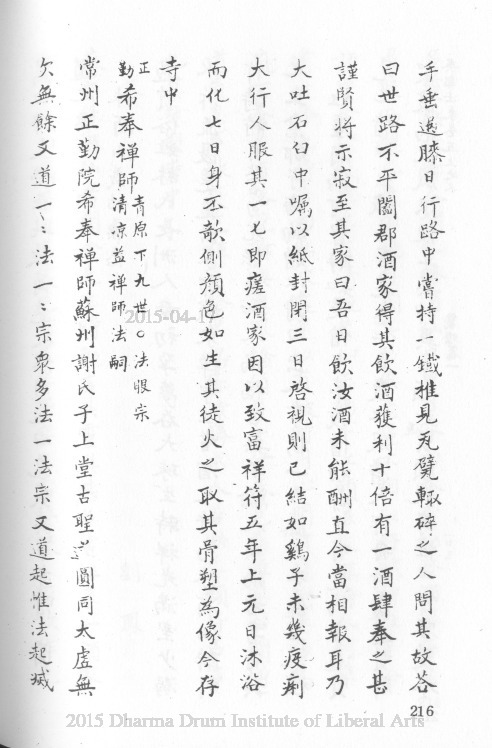 手垂過膝日行路中嘗持一鐵椎見瓦甓輙碎之人問其故荅
曰世路不平闔郡酒家得其飲酒獲利十倍有一酒肆奉之甚
謹賢将示寂至其家曰吾日飲汝酒未能酬直今當相報耳乃
大吐石臼中嘱以紙封閉三日啓視則已結如鷄子未幾疫痢
大行人服其一七即瘥酒家因以致富祥符五年上元日沐浴
而化七日身不欹側顔色如生其徒火之取其骨塑為像今存
寺中
正勤希奉禅師 青原下九世○法眼宗 清凉益禅師法嗣
常州正勤院希奉禅師蘇州謝氏子上堂古聖道圓同太虚無
欠無餘又道一〻法一〻宗衆多法一法宗又道起惟法起滅
216
2015-04-17
2015 Dharma Drum Institute of Liberal Arts